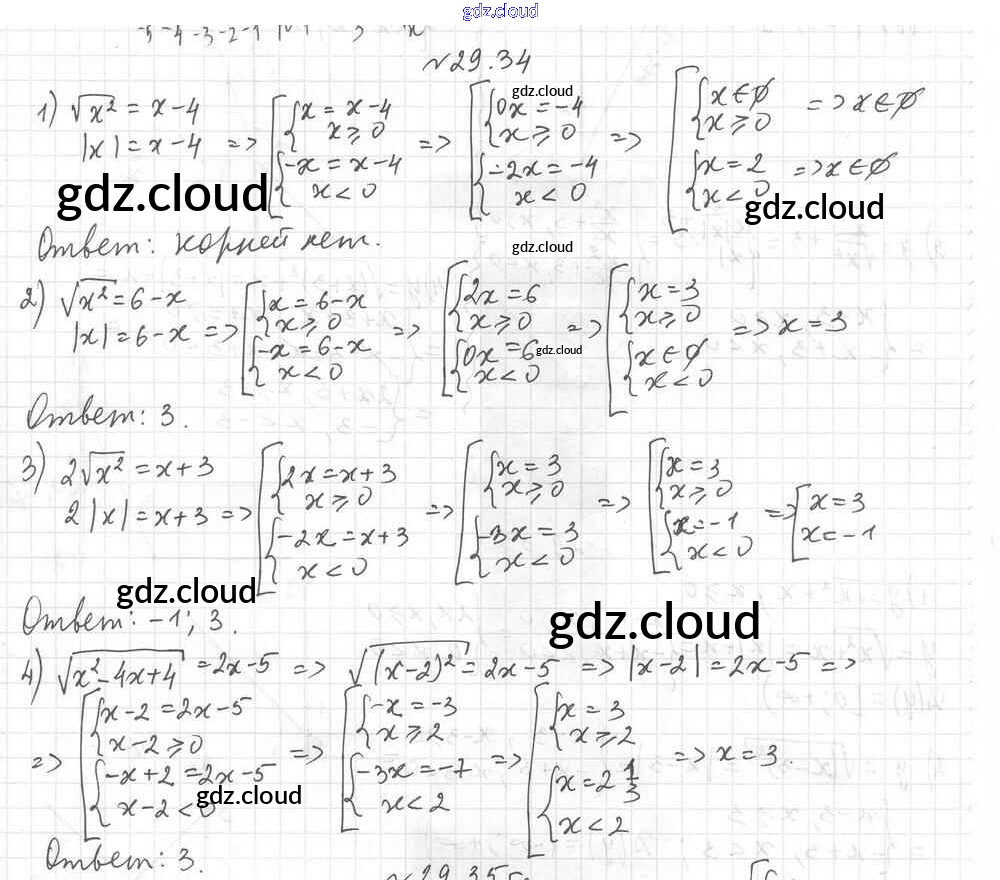 gdz.cloud
-5 -4 -3 -2 -1
№29.34
1) √x² = x-4
|x| = x-4 => [ { x = x-4, x ≥ 0 ; { -x = x-4, x < 0 => [ { 0x = -4, x ≥ 0 ; { -2x = -4, x < 0 => [ { x ∈ ∅, x ≥ 0 => x ∈ ∅ ; { x = 2, x < 0 => x ∈ ∅
gdz.cloud
gdz.cloud
gdz.cloud
Ответ: корней нет.
gdz.cloud
2) √x² = 6-x
|x| = 6-x => [ { x = 6-x, x ≥ 0 ; { -x = 6-x, x < 0 => [ { 2x = 6, x ≥ 0 ; { 0x = 6, x < 0 => [ { x = 3, x ≥ 0 ; { x ∈ ∅, x < 0 => x = 3
gdz.cloud
Ответ: 3.
3) 2√x² = x+3
2|x| = x+3 => [ { 2x = x+3, x ≥ 0 ; { -2x = x+3, x < 0 => [ { x = 3, x ≥ 0 ; { -3x = 3, x < 0 => [ { x = 3, x ≥ 0 ; { x = -1, x < 0 => [ x = 3, x = -1
gdz.cloud
Ответ: -1; 3.
gdz.cloud
4) √x²-4x+4 = 2x-5 => √(x-2)² = 2x-5 => |x-2| = 2x-5 =>
=> [ { x-2 = 2x-5, x-2 ≥ 0 ; { -x+2 = 2x-5, x-2 < 0 => [ { -x = -3, x ≥ 2 ; { -3x = -7, x < 2 => [ { x = 3, x ≥ 2 ; { x = 2 1/3, x < 2 => x = 3.
gdz.cloud
Ответ: 3.
№29.35